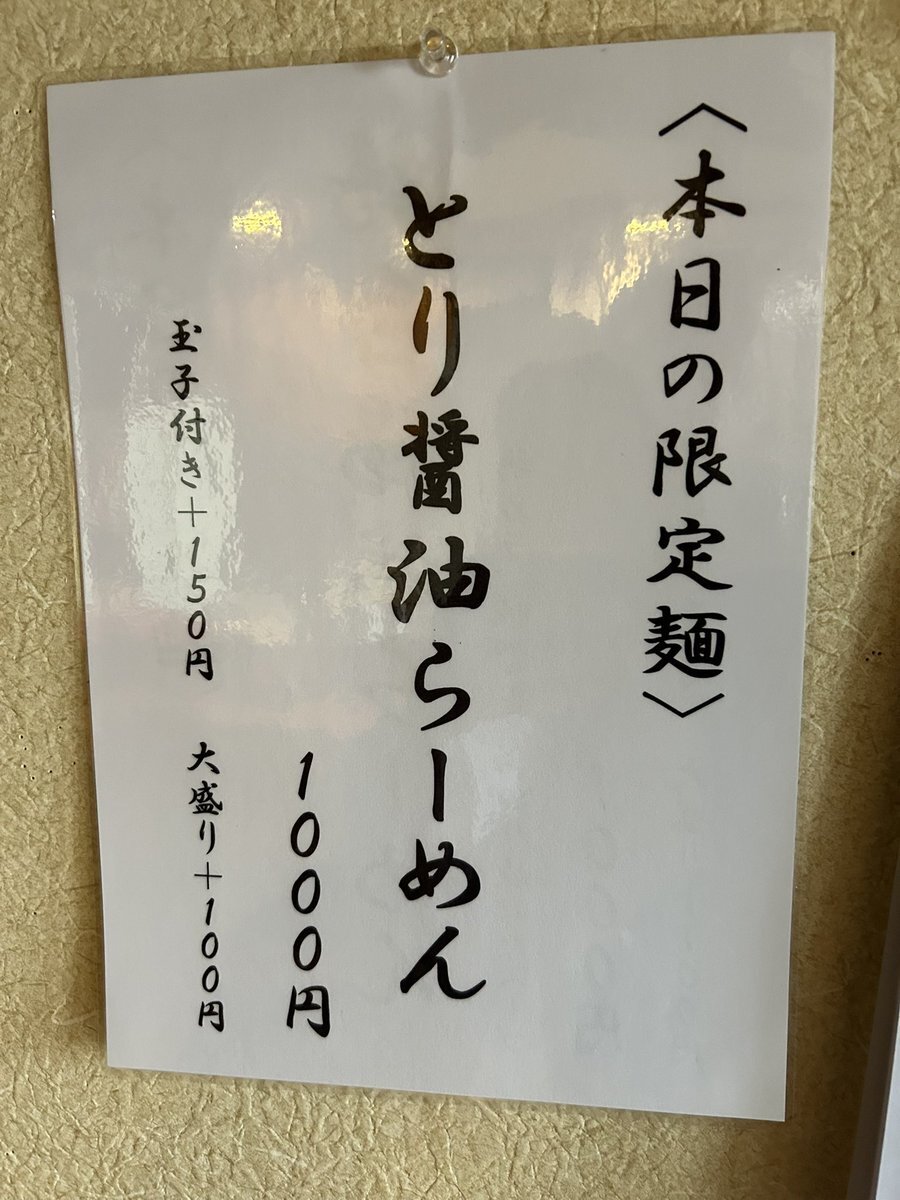 〈本日の限定麺〉
とり醤油らーめん
1000円
玉子付き＋150円　大盛り＋100円